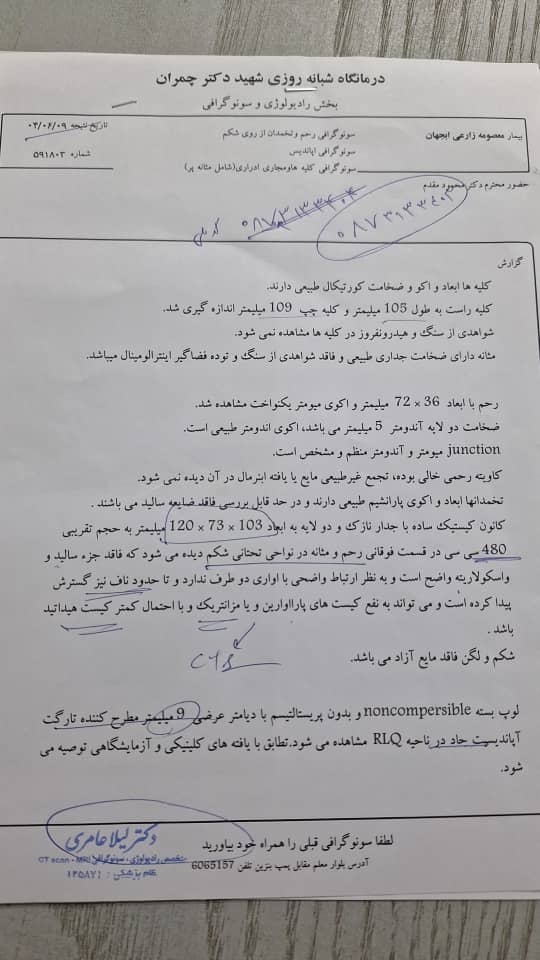 درمانگاه شبانه روزی شهید دکتر چمران
بخش رادیولوژی و سونوگرافی
بیمار معصومه زارعی ابجهان
سونوگرافی رحم وتخمدان از روی شکم
تاریخ نتیجه ۰۴/۰۶/۰۹
سونوگرافی اپاندیس
شماره ۵۹۱۸۰۳
سونوگرافی کلیه هاومجاری ادراری(شامل مثانه پر)
حضور محترم دکتر محمود مقدم
گزارش
کلیه ها ابعاد و اکو و ضخامت کورتیکال طبیعی دارند.
کلیه راست به طول 105 میلیمتر و کلیه چپ 109 میلیمتر اندازه گیری شد.
شواهدی از سنگ و هیدرونفروز در کلیه ها مشاهده نمی شود.
مثانه دارای ضخامت جداری طبیعی و فاقد شواهدی از سنگ و توده فضاگیر اینترالومینال میباشد.
رحم با ابعاد 36 × 72 میلیمتر و اکوی میومتر یکنواخت مشاهده شد.
ضخامت دو لایه آندومتر 5 میلیمتر می باشد، اکوی اندومتر طبیعی است.
junction میومتر و آندومتر منظم و مشخص است.
کاویته رحمی خالی بوده، تجمع غیرطبیعی مایع یا یافته ابنرمال در آن دیده نمی شود.
تخمدانها ابعاد و اکوی پارانشیم طبیعی دارند و در حد قابل بررسی فاقد ضایعه سالید می باشند .
کانون کیستیک ساده با جدار نازک و دو لایه به ابعاد 103 × 73 × 120 میلیمتر به حجم تقریبی
480 سی سی در قسمت فوقانی رحم و مثانه در نواحی تحتانی شکم دیده می شود که فاقد جزء سالید و
واسکولاریته واضح است و به نظر ارتباط واضحی با اواری دو طرف ندارد و تا حدود ناف نیز گسترش
پیدا کرده است و می تواند به نفع کیست های پارااوارین و یا مزانتریک و با احتمال کمتر کیست هیداتید
باشد .
شکم و لگن فاقد مایع آزاد می باشد.
لوپ بسته noncompersible و بدون پریستالتیسم با دیامتر عرضی 9 میلیمتر مطرح کننده تارگت
آپاندیسیت حاد در ناحیه RLQ مشاهده می شود.تطابق با یافته های کلینیکی و آزمایشگاهی توصیه می
شود.
لطفا سونوگرافی قبلی را همراه خود بیاورید
آدرس بلوار معلم مقابل پمپ بنزین تلفن 6065157
دکتر لیلا عامری
تخصص رادیولوژی ، سونوگرافی CT scan - MRI
نظام پزشکی : ۱۴۵۸۷۱